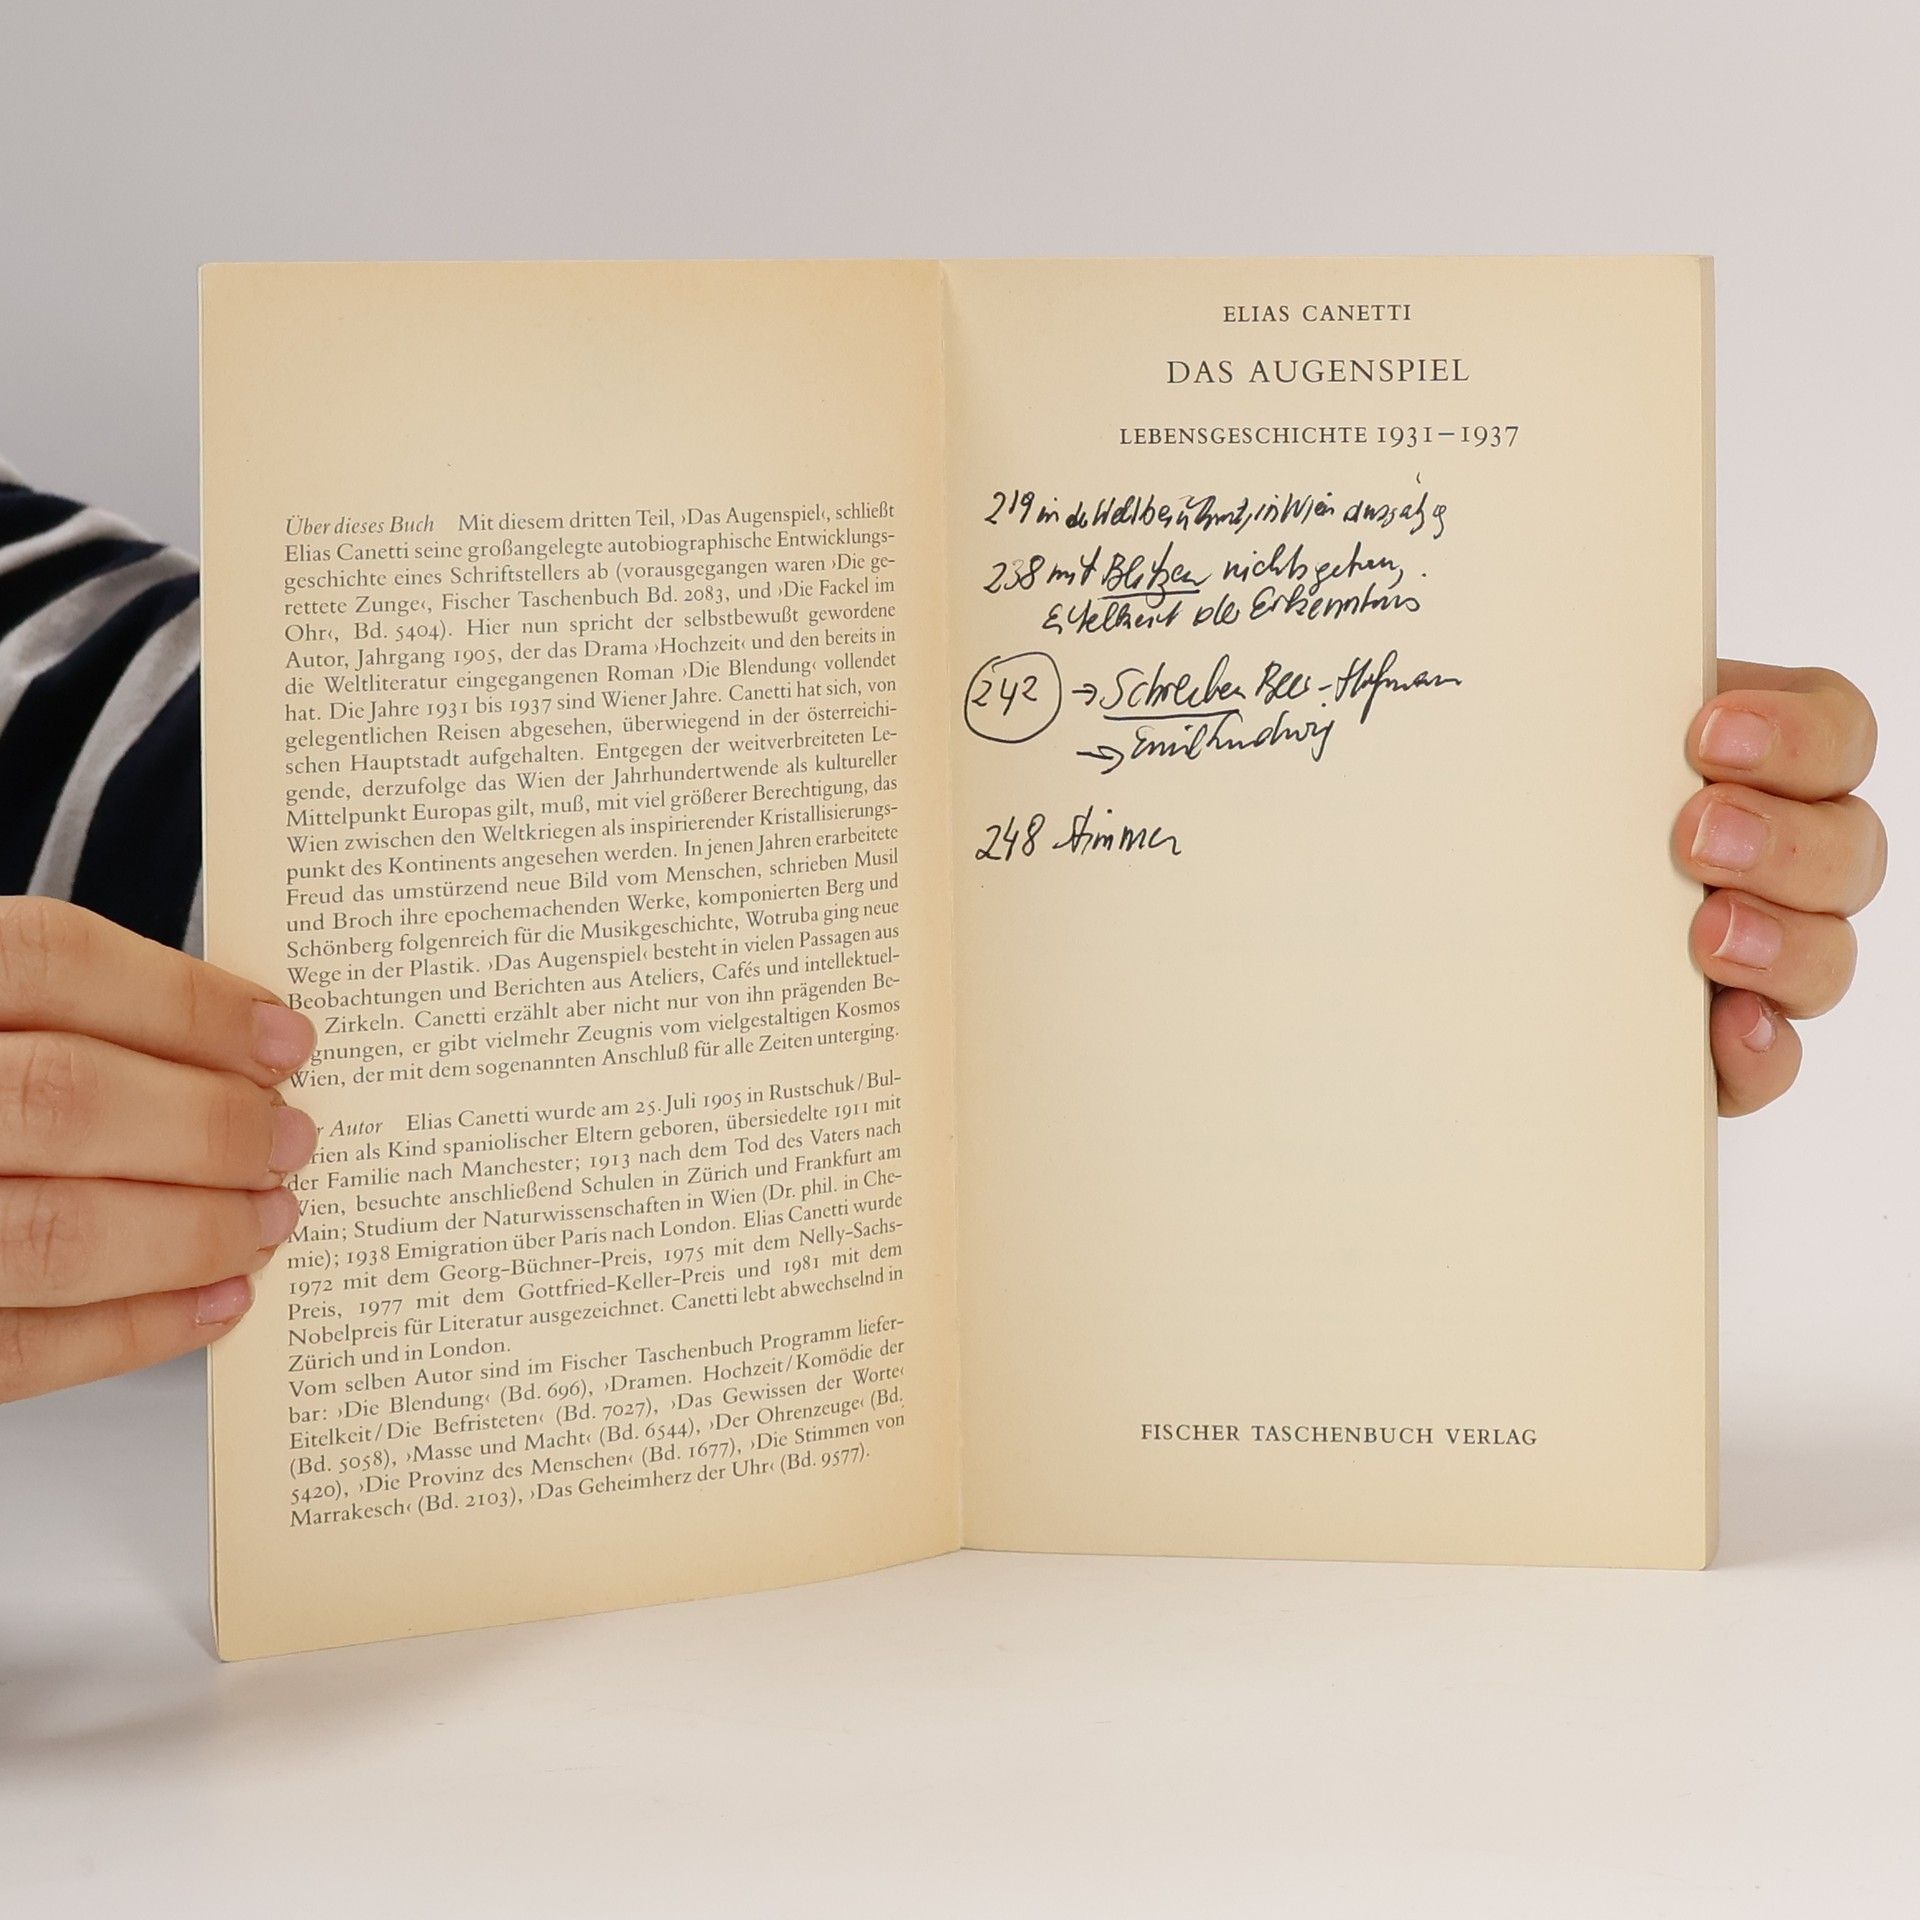 Über dieses Buch Mit diesem dritten Teil, ›Das Augenspiel‹, schließt
Elias Canetti seine großangelegte autobiographische Entwicklungs-
geschichte eines Schriftstellers ab (vorausgegangen waren ›Die ge-
rettete Zunge‹, Fischer Taschenbuch Bd. 2083, und ›Die Fackel im
Ohr‹, Bd. 5404). Hier nun spricht der selbstbewußt gewordene
Autor, Jahrgang 1905, der das Drama ›Hochzeit‹ und den bereits in
die Weltliteratur eingegangenen Roman ›Die Blendung‹ vollendet
hat. Die Jahre 1931 bis 1937 sind Wiener Jahre. Canetti hat sich, von
gelegentlichen Reisen abgesehen, überwiegend in der österreichi-
schen Hauptstadt aufgehalten. Entgegen der weitverbreiteten Le-
gende, derzufolge das Wien der Jahrhundertwende als kultureller
Mittelpunkt Europas gilt, muß, mit viel größerer Berechtigung, das
Wien zwischen den Weltkriegen als inspirierender Kristallisierungs-
punkt des Kontinents angesehen werden. In jenen Jahren erarbeitete
Freud das umstürzend neue Bild vom Menschen, schrieben Musil
und Broch ihre epochemachenden Werke, komponierten Berg und
Schönberg folgenreich für die Musikgeschichte, Wotruba ging neue
Wege in der Plastik. ›Das Augenspiel‹ besteht in vielen Passagen aus
Beobachtungen und Berichten aus Ateliers, Cafés und intellektuel-
Zirkeln. Canetti erzählt aber nicht nur von ihn prägenden Be-
gnungen, er gibt vielmehr Zeugnis vom vielgestaltigen Kosmos
Wien, der mit dem sogenannten Anschluß für alle Zeiten unterging.
r Autor Elias Canetti wurde am 25. Juli 1905 in Rustschuk/Bul-
rien als Kind spaniolischer Eltern geboren, übersiedelte 1911 mit
der Familie nach Manchester; 1913 nach dem Tod des Vaters nach
Wien, besuchte anschließend Schulen in Zürich und Frankfurt am
Main; Studium der Naturwissenschaften in Wien (Dr. phil. in Che-
mie); 1938 Emigration über Paris nach London. Elias Canetti wurde
1972 mit dem Georg-Büchner-Preis, 1975 mit dem Nelly-Sachs-
Preis, 1977 mit dem Gottfried-Keller-Preis und 1981 mit dem
Nobelpreis für Literatur ausgezeichnet. Canetti lebt abwechselnd in
Zürich und in London.
Vom selben Autor sind im Fischer Taschenbuch Programm liefer-
bar: ›Die Blendung‹ (Bd. 696), ›Dramen. Hochzeit/Komödie der
Eitelkeit/Die Befristeten‹ (Bd. 7027), ›Das Gewissen der Worte‹
(Bd. 5058), ›Masse und Macht‹ (Bd. 6544), ›Der Ohrenzeuge‹ (Bd.
5420), ›Die Provinz des Menschen‹ (Bd. 1677), ›Die Stimmen von
Marrakesch‹ (Bd. 2103), ›Das Geheimherz der Uhr‹ (Bd. 9577).
ELIAS CANETTI
DAS AUGENSPIEL
LEBENSGESCHICHTE 1931–1937
219 in der Welt berühmt, in Wien aussätzig
238 mit Blitzen nichts getan,
Eitelkeit der Erkenntnis
242 → Schreiben Beer-Hofmann
→ Emil Ludwig
248 Stimmen
FISCHER TASCHENBUCH VERLAG